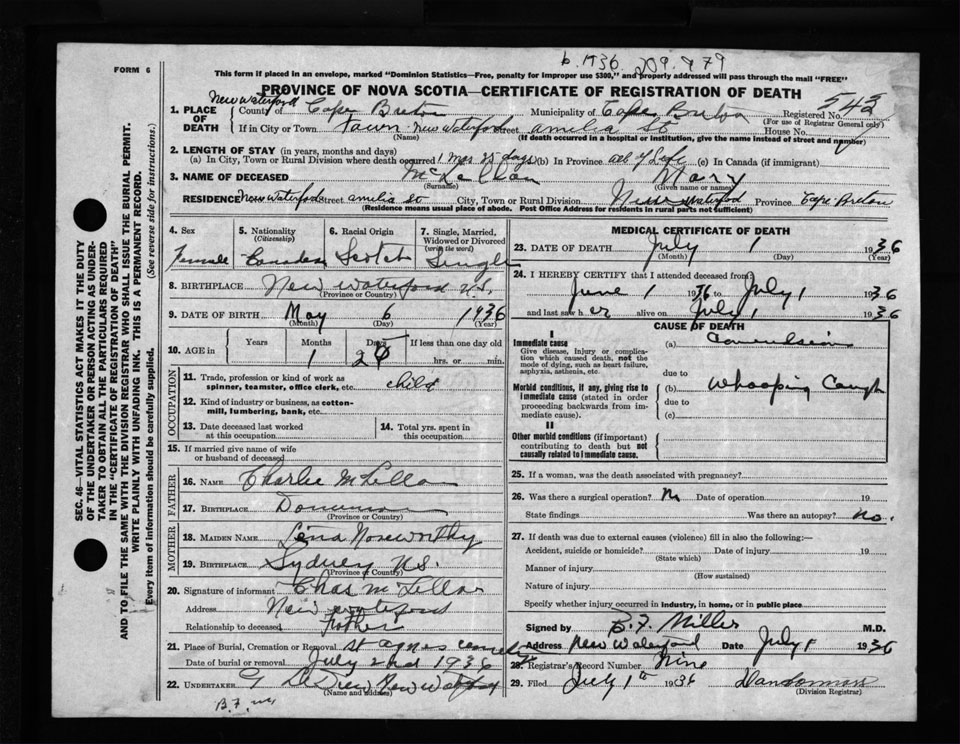 b. 1936. 209.979
FORM 6
This form if placed in an envelope, marked "Dominion Statistics—Free, penalty for improper use $300," and properly addressed will pass through the mail "FREE"
PROVINCE OF NOVA SCOTIA—CERTIFICATE OF REGISTRATION OF DEATH
New Waterford
1. PLACE OF DEATH County of Cape Breton Municipality of Cape Breton Registered No. 543
(For use of Registrar General only)
If in City or Town Town New Waterford street amelia st House No.
(Name) (If death occurred in a hospital or institution, give the name instead of street and number)
2. LENGTH OF STAY (in years, months and days)
(a) In City, Town or Rural Division where death occurred 1 mos 25 days (b) In Province all of Life (c) In Canada (if immigrant)
3. NAME OF DECEASED McLellan Mary
(Surname) (Given name or names)
RESIDENCE New Waterford street amelia st City, Town or Rural Division New Waterford Province Cape Breton
(Residence means usual place of abode. Post Office Address for residents in rural parts not sufficient)
4. Sex 5. Nationality (Citizenship) 6. Racial Origin 7. Single, Married, Widowed or Divorced (write the word)
Female Canadian Scotch Single
8. BIRTHPLACE New Waterford N.S.
(Province or Country)
9. DATE OF BIRTH May 6 1936
(Month) (Day) (Year)
10. AGE in Years Months Days If less than one day old
1 hrs. or min.
OCCUPATION
11. Trade, profession or kind of work as spinner, teamster, office clerk, etc. child
12. Kind of industry or business, as cotton-mill, lumbering, bank, etc.
13. Date deceased last worked at this occupation 14. Total yrs. spent in this occupation
15. If married give name of wife or husband of deceased
FATHER
16. NAME Charlie McLellan
17. BIRTHPLACE
(Province or Country)
MOTHER
18. MAIDEN NAME Lena Noseworthy
19. BIRTHPLACE Sydney N.S.
(Province or Country)
20. Signature of informant Chas McLellan
Address New Waterford
Relationship to deceased Father
21. Place of Burial, Cremation or Removal St agnes cemetery
Date of burial or removal July 2nd 1936
22. UNDERTAKER New Waterford
(Name and address)
B.F. M
MEDICAL CERTIFICATE OF DEATH
23. DATE OF DEATH July 1 1936
(Month) (Day) (Year)
24. I HEREBY CERTIFY that I attended deceased from
June 1 1936 to July 1 1936
and last saw her alive on July 1 1936
CAUSE OF DEATH
I
Immediate cause (a) Convulsions
Give disease, injury or complication which caused death, not the mode of dying, such as heart failure, asphyxia, asthenia, etc.
due to
Morbid conditions, if any, giving rise to immediate cause (stated in order proceeding backwards from immediate cause). (b) Whooping Cough
due to
(c)
II
Other morbid conditions (if important) contributing to death but not causally related to immediate cause.
25. If a woman, was the death associated with pregnancy?
26. Was there a surgical operation? No Date of operation 19
State findings Was there an autopsy? no.
27. If death was due to external causes (violence) fill in also the following:—
Accident, suicide or homicide? Date of injury 19
(State which)
Manner of injury
(How sustained)
Nature of injury
Specify whether injury occurred in industry, in home, or in public place
Signed by B.F. Miller M.D.
Address New Waterford Date July 1 1936
28. Registrar's Record Number Nine
29. Filed July 1st 1936
(Division Registrar)
SEC. 46—VITAL STATISTICS ACT MAKES IT THE DUTY OF THE UNDERTAKER OR PERSON ACTING AS UNDERTAKER TO OBTAIN ALL THE PARTICULARS REQUIRED IN THE "CERTIFICATE OF REGISTRATION OF DEATH" AND TO FILE THE SAME WITH THE DIVISION REGISTRAR WHO SHALL ISSUE THE BURIAL PERMIT.
WRITE PLAINLY WITH UNFADING INK. THIS IS A PERMANENT RECORD.
Every item of information should be carefully supplied. (See reverse side for instructions.)